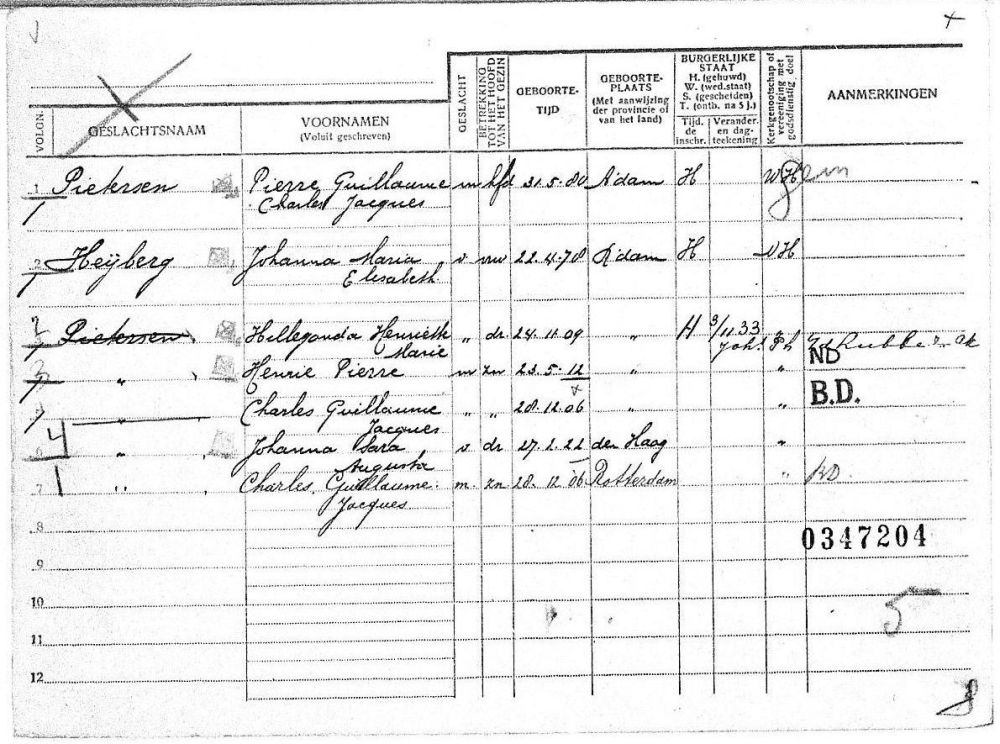 VOLGN.
GESLACHTSNAAM
VOORNAMEN
(Voluit geschreven)
GESLACHT
BETREKKING
TOT HET HOOFD
VAN HET GEZIN
GEBOORTE-
TIJD
GEBOORTE-
PLAATS
(Met aanwijzing
der provincie of
van het land)
BURGERLIJKE
STAAT
H. (gehuwd)
W. (wed.staat)
S. (gescheiden)
T. (ontb. na 5 j.)
Tijd.
de
inschr.
Verander.
en dag-
teekening
Kerkgenootschap of
vereeniging met
godsdienstig doel
AANMERKINGEN
1 Pietersen Pierre Guillaume m hfd 31.5.80 A'dam H WH
Charles Jacques
2 Heÿberg Johanna Maria v vrw 22.4.78 R'dam H NH
Elisabeth
Pietersen Hillegonda Henriette " dr. 24.11.09 " H 3/11.33
Marie
ND
" Henrie Pierre m zn 23.5.12 " "
" Charles Guillaume " " 28.12.06 " " B.D.
Jacques
6 " Johanna Sara v dr. 27.2.22 den Haag "
Augusta
7 " Charles Guillaume m. zn 28.12.06 Rotterdam "
Jacques
8
0347204
9
10
5
11
12